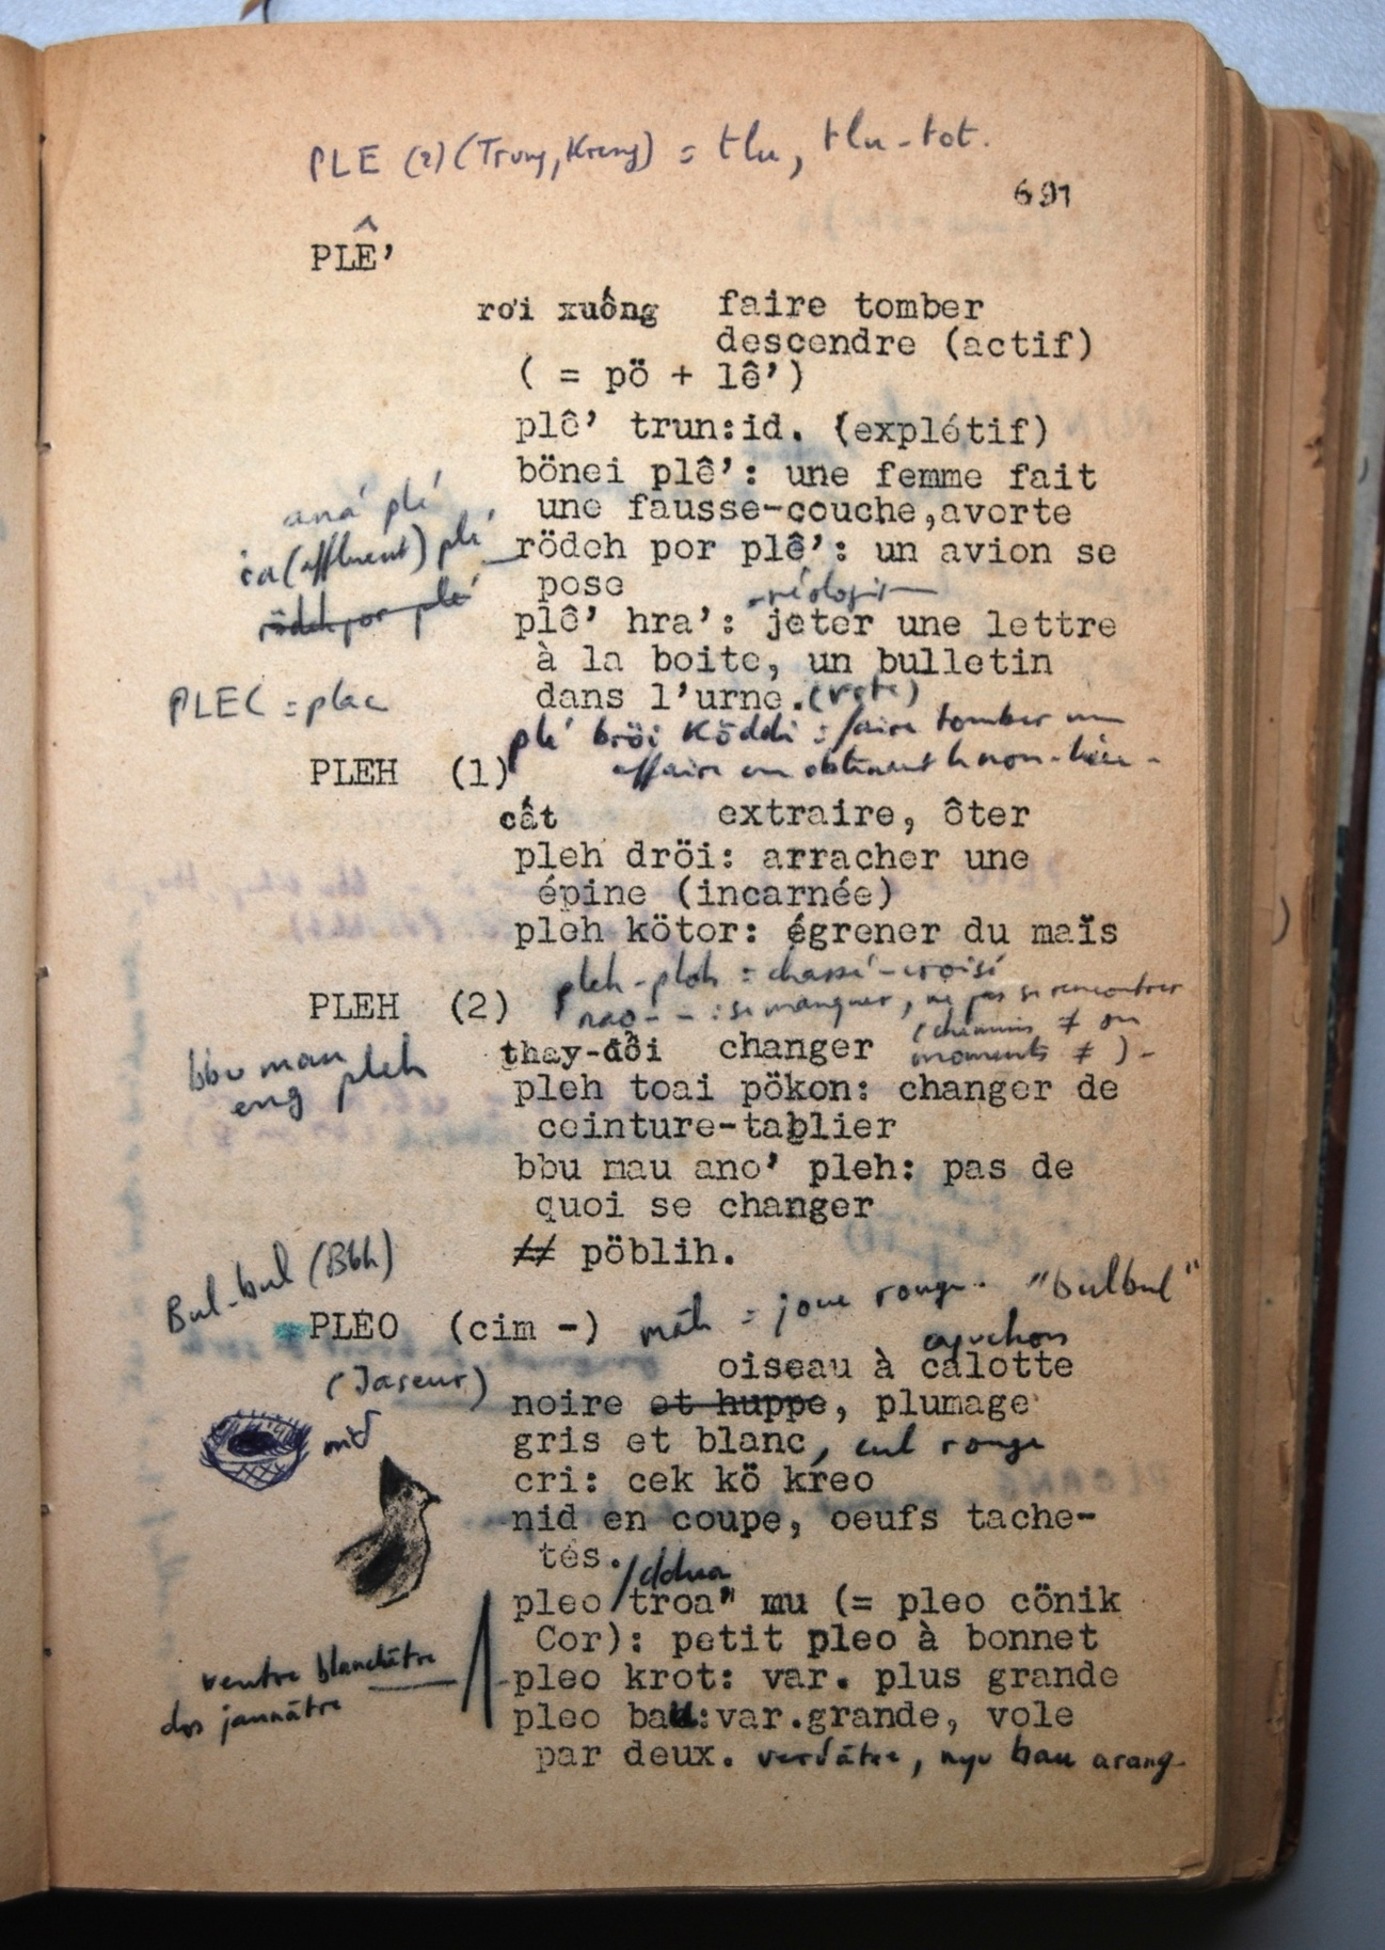 PLE (2) (Trung, Kreng) = tlu, tlu-tot.
691
PLÊ’
rơi xuống faire tomber
descendre (actif)
( = pö + lê’)
plê’ trun:id. (explétif)
bönei plê’: une femme fait
une fausse-couche,avorte
aná plé
ca (affluent) plé
rödeh por plê’: un avion se
pose
néologis
rödeh por plé
plê’ hra’: jeter une lettre
à la boite, un bulletin
dans l’urne. (vote)
PLEC = plac
plé bröi Köddi : faire tomber une
affaire en obtenant le non-lieu -
PLEH (1)
cất extraire, ôter
pleh dröi: arracher une
épine (incarnée)
pleh kötor: égrener du maïs
pleh-ploh = chassé-croisé
PLEH (2)
nao - - : se manquer, ne pas se rencontrer
(chemins ≠ ou
moments ≠ ) -
thay-đổi changer
bbu man
eng pleh
pleh toai pökon: changer de
ceinture-tablier
bbu mau ano’ pleh: pas de
quoi se changer
≠≠ pöblih.
Bul-bul (Bbh)
PLEO (cim -) mah = joue rouge. "bulbul"
capuchon
oiseau à calotte
(Jaseur)
noire et huppe, plumage
gris et blanc, cul rouge
nid
cri: cek kö kreo
nid en coupe, oeufs tache-
tés.
/ddua
pleo/troa" mu (= pleo cönik
Cor): petit pleo à bonnet
ventre blanchâtre
dos jaunâtre
pleo krot: var. plus grande
pleo bau:var.grande, vole
par deux. verdâtre, nyu bau arang-